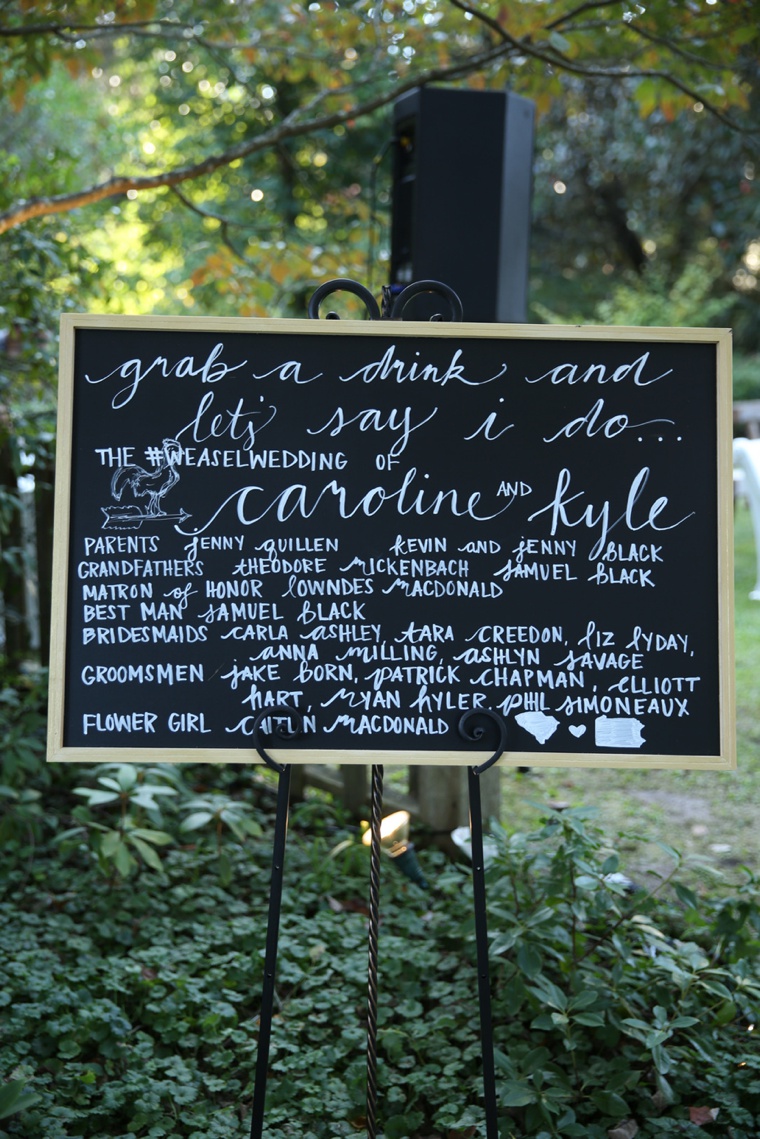 grab a drink and
let's say i do...
THE #WEASELWEDDING OF
caroline AND kyle
PARENTS JENNY QUILLEN KEVIN AND JENNY BLACK
GRANDFATHERS THEODORE MICKENBACH SAMUEL BLACK
MATRON of HONOR LOWNDES MACDONALD
BEST MAN SAMUEL BLACK
BRIDESMAIDS CARLA ASHLEY, TARA CREEDON, LIZ LYDAY,
ANNA MILLING, ASHLYN SAVAGE
GROOMSMEN JAKE BORN, PATRICK CHAPMAN, ELLIOTT
HART, RYAN HYLER, PHIL SIMONEAUX
FLOWER GIRL CAITLIN MACDONALD